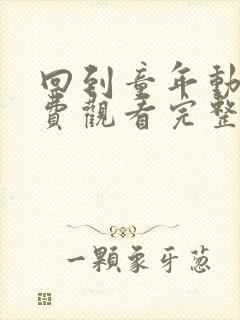 回到童年動
費觀看完整
一顆象牙蔥